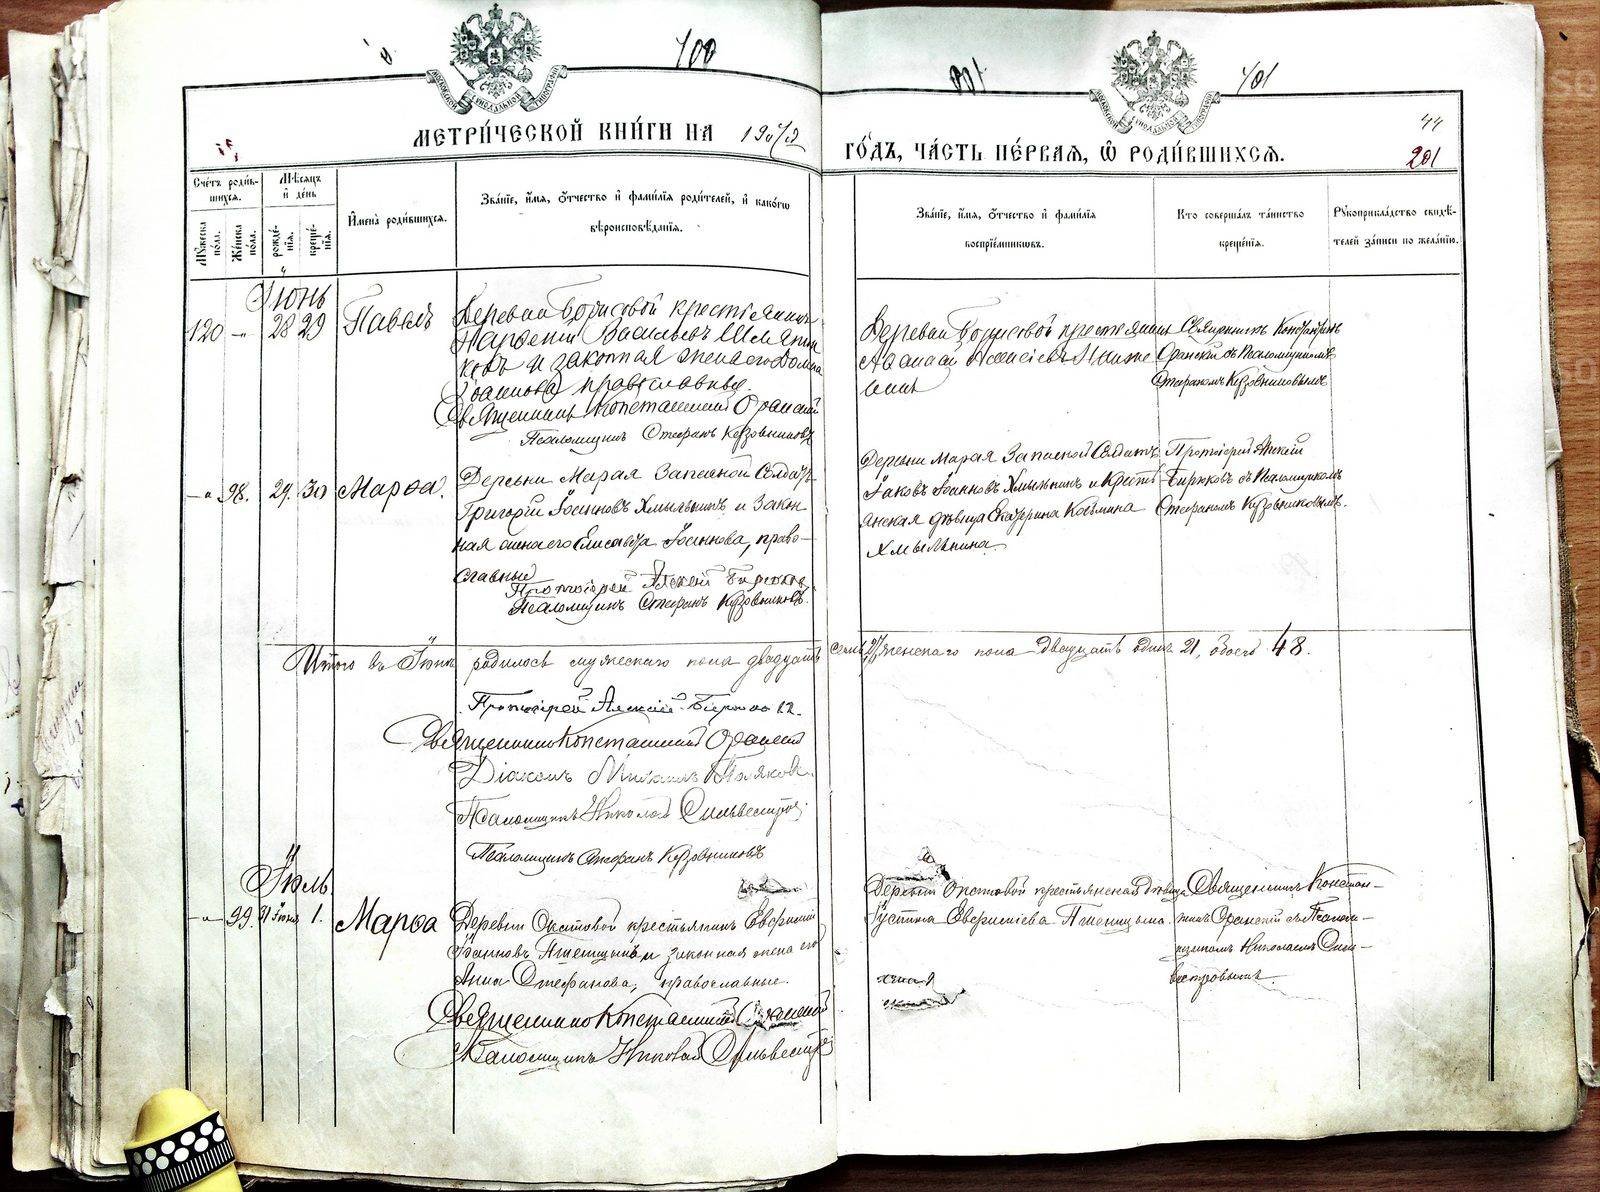 400
401
МОСКОВСКОЙ СѴНОДАЛЬНОЙ ТИПОГРАФІИ
МОСКОВСКОЙ СѴНОДАЛЬНОЙ ТИПОГРАФІИ
МЕТРИ́ЧЕСКОЙ КНИ́ГИ НА
ГО́ДЪ, ЧА́СТЬ ПЕ́РВАЯ, Ѡ҆ РОДИ́ВШИХСЯ.
44
201
Сче́тъ роди́в-
шихся.
Мꙋ́жеска
по́ла.
Же́нска
по́ла.
Мѣ́сяцъ
и҆ де́нь
рожде́-
нїя.
креще́-
нїя.
И҆мена̀ роди́вшихся.
Зва́нїе, и҆́мя, ѻ҆́тчество и҆ фами́лїя роди́телей, и҆ како́гѡ
вѣроисповѣ́данїя.
Зва́нїе, и҆́мя, ѻ҆́тчество и҆ фами́лїя
воспрїе́мниковъ.
Кто̀ соверша́лъ та́инство
креще́нїя.
Рꙋкоприкла́дство свидѣ́-
телей за́писи по жела́нїю.
Іюнь
120 — 28 29 Павелъ
Деревни Борисовой крестьянинъ
Парѳеній Васильевъ Шляпни
ковъ и законная жена его Домна
Іоаннова, православные.
Священникъ Константинъ Оранскій
Псаломщикъ Стефанъ Кузовниковъ
Деревни Борисовой крестьянинъ
Священникъ Константинъ
Оранскій съ Псаломщикомъ
Стефаномъ Кузовниковымъ
— 98. 29. 30 Марѳа.
Деревни Марая Запасной Солдатъ
Григорій Іоанновъ Хмылнинъ и Закон
ная жена его Елисавета Іоаннова, право-
славные
Протоіерей Алексій Бирюковъ
Псаломщикъ Стефанъ Кузовниковъ.
Деревни Марая Запасной Солдатъ
Іаковъ Іоанновъ Хмылнинъ и Кресть-
янская дѣвица Екатерина Козьмина
Хмылнина
Протоіерей Алексій
Бирюковъ съ Псаломщикомъ
Стефаномъ Кузовниковымъ.
Итого въ Іюнѣ родилось мужескаго пола двадцать семь 27, женскаго пола двадцать одна 21, обоего 48.
Протоіерей Алексій Бирюковъ.
Священникъ Константинъ Оранскій
Діаконъ Михаилъ Поляковъ.
Псаломщикъ Николай Сильвестровъ
Псаломщикъ Стефанъ Кузовниковъ
Іюль
— 99. Іюня 1. Марѳа
Деревни Окатовой крестьянинъ Евфимій
Іоанновъ Пшеницынъ и законная жена его
Анна Стефанова, православные.
Священникъ Константинъ Оранскій
Псаломщикъ Николай Сильвестровъ
Деревни Окатовой крестьянская дѣвица
Іустина Евфиміева Пшеницына.
Священникъ Констан-
тинъ Оранскій съ Псалом-
щикомъ Николаемъ Силь-
вестровымъ.